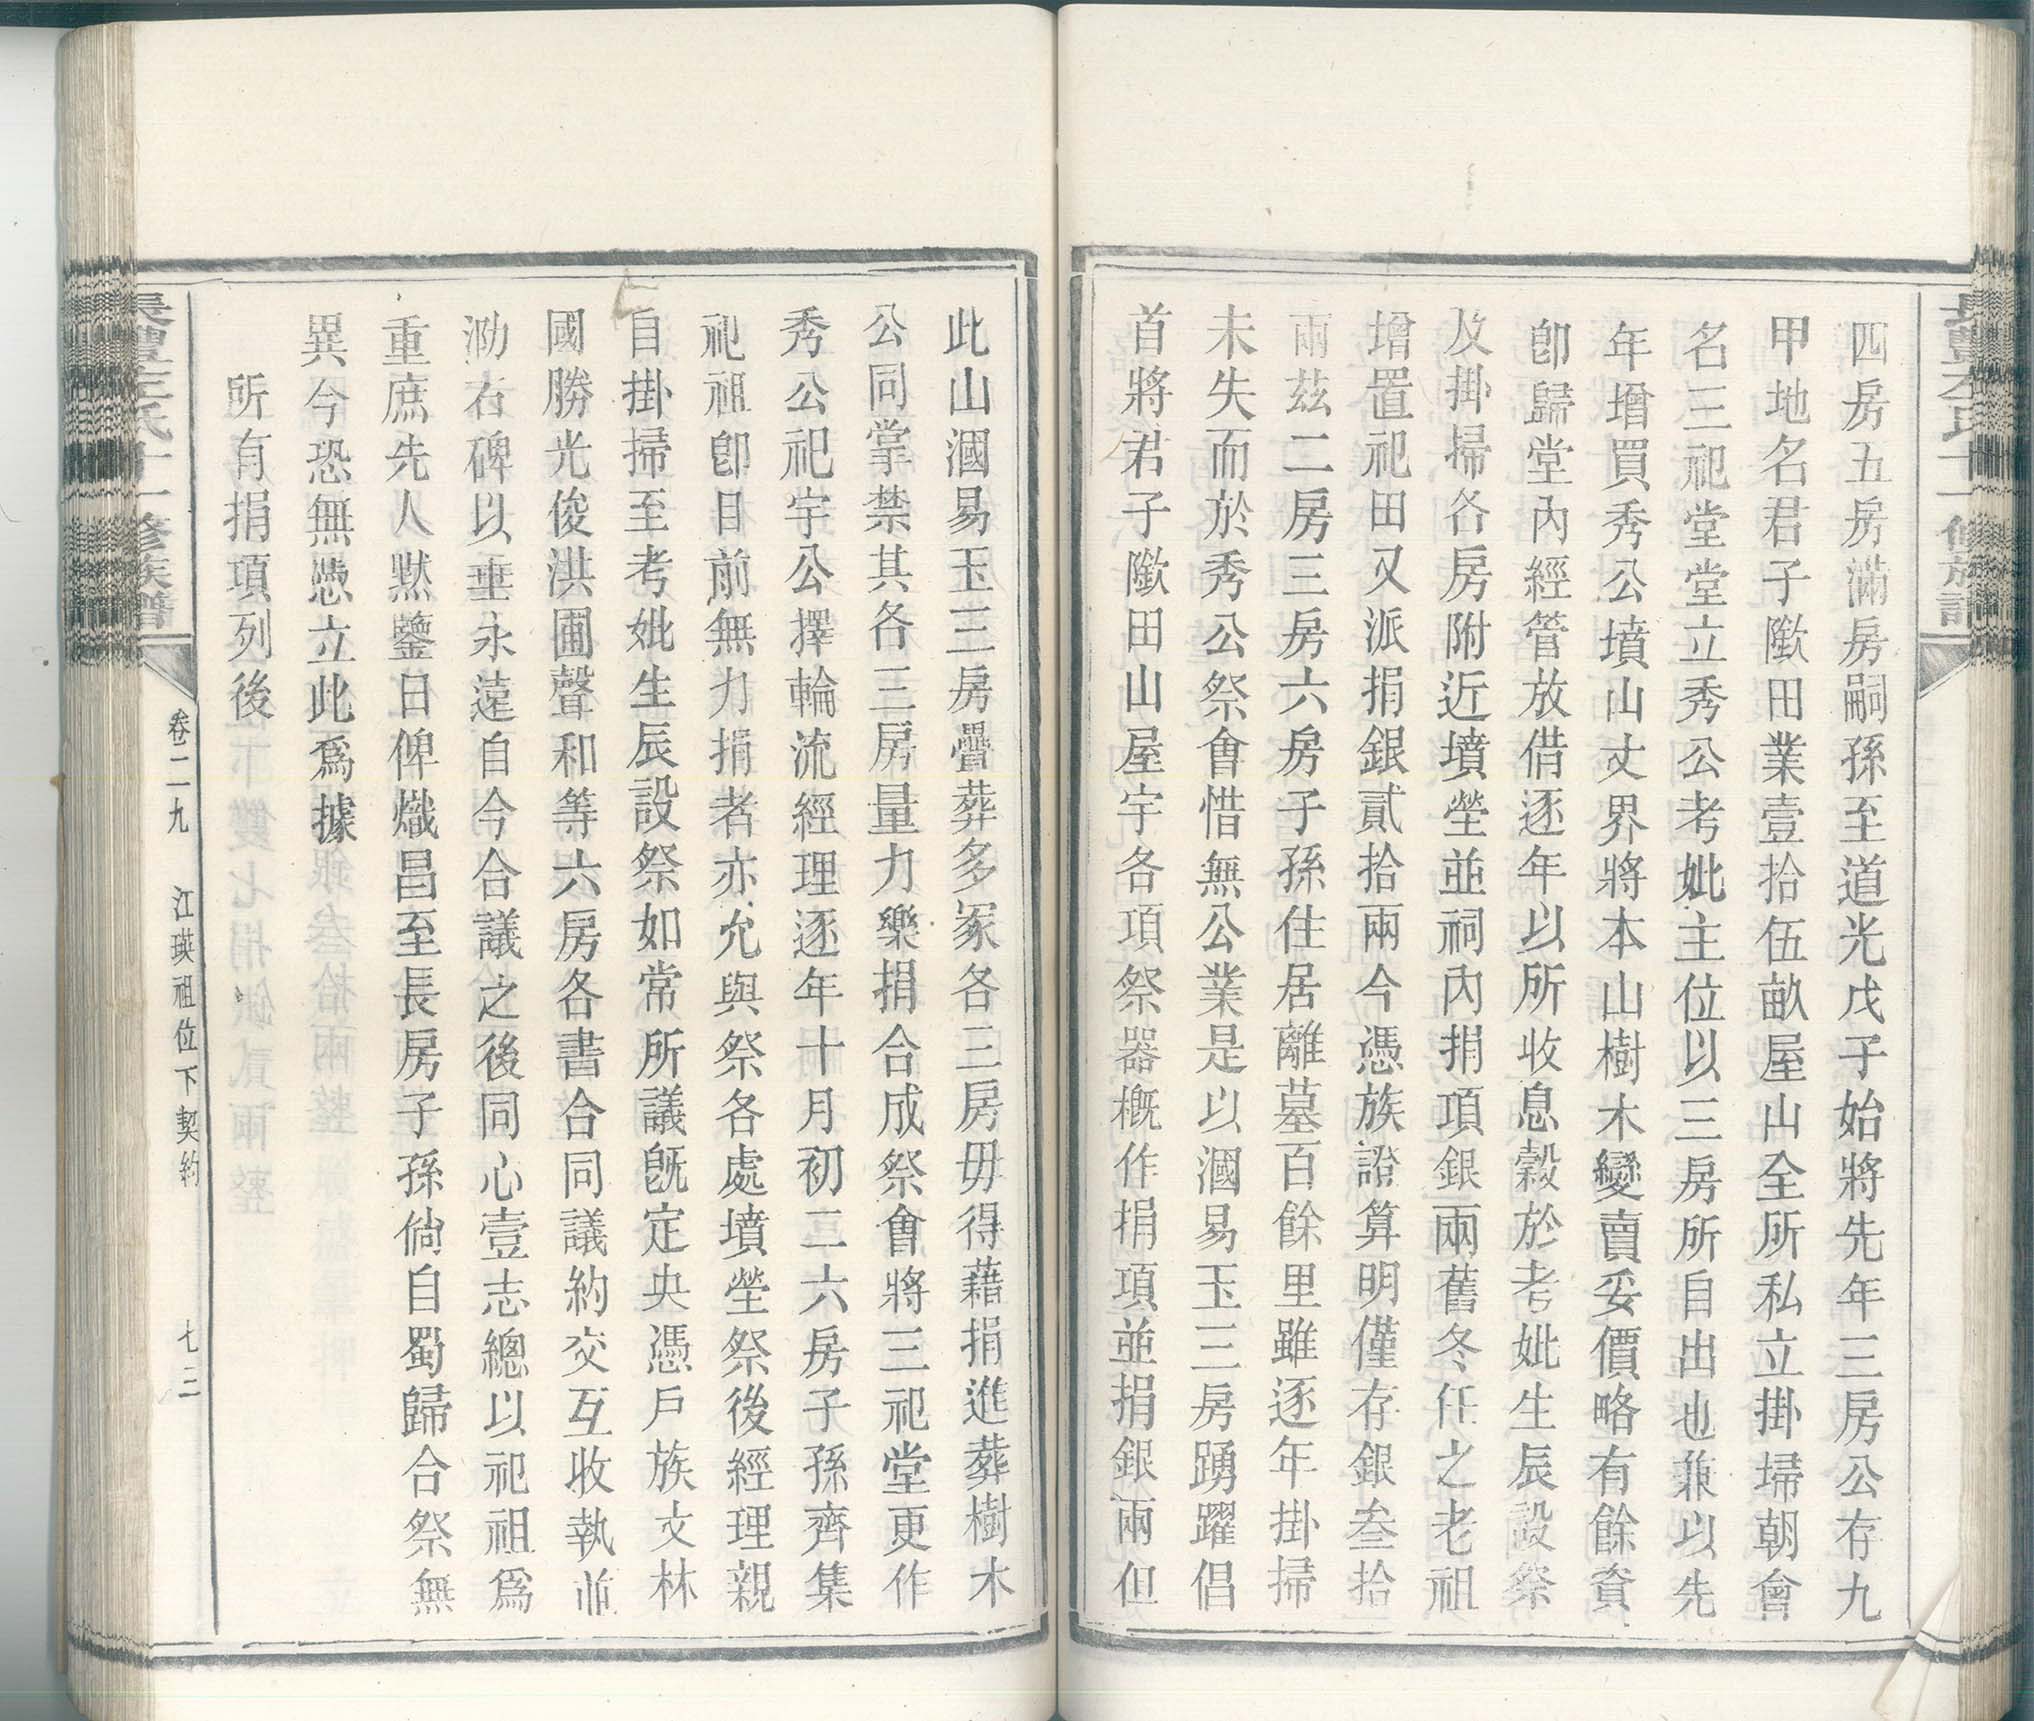 四房五房滿房嗣孫至道光戊子始將先年三房公存九
甲地名君子隞田業壹拾伍畝屋山全所私立掛掃朝會
名三祀堂堂立秀公考妣主位以三房所自出也兼以先
年增買秀公墳山丈界將本山樹木變賣妥價略有餘資
卽歸堂內經管放借逐年以所收息穀於考妣生辰設祭
及掛掃各房附近墳塋並祠內捐項銀兩舊冬任之老祖
增置祀田又派捐銀貳拾兩今憑族證算明僅存銀叁拾
兩茲二房三房六房子孫住居離墓百餘里雖逐年掛掃
未失而於秀公祭會惜無公業是以漍易玉三房踴躍倡
首將君子隞田山屋宇各項祭器概作捐項並捐銀兩但
此山漍易玉三房疊葬多冢各三房毋得藉捐進葬樹木
公同掌禁其各三房量力樂捐合成祭會將三祀堂更作
秀公祀宇公擇輪流經理逐年十月初二六房子孫齊集
祀祖卽目前無力捐者亦允與祭各處墳塋祭後經理親
自掛掃至考妣生辰設祭如常所議旣定央憑戶族文林
國勝光俊洪圃聲和等六房各書合同議約交互收執並
泐石碑以垂永遠自今合議之後同心壹志總以祀祖爲
重庶先人默鑒日俾熾昌至長房子孫倘自蜀歸合祭無
異今恐無憑立此爲據
所有捐項列後
氏十一修族譜
卷二九
江瑛祖位下契約
七三